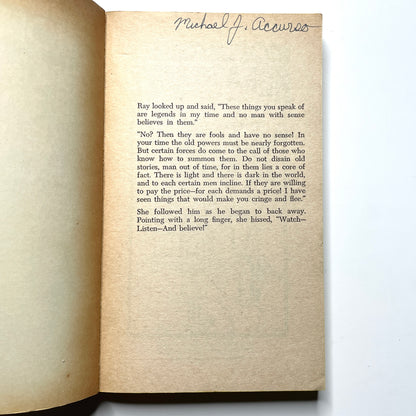 Michael J. Accurso
Ray looked up and said, "These things you speak of
are legends in my time and no man with sense
believes in them."
"No? Then they are fools and have no sense! In
your time the old powers must be nearly forgotten.
But certain forces do come to the call of those who
know how to summon them. Do not disain old
stories, man out of time, for in them lies a core of
fact. There is light and there is dark in the world,
and to each certain men incline. If they are willing
to pay the price—for each demands a price! I have
seen things that would make you cringe and flee."
She followed him as he began to back away.
Pointing with a long finger, she hissed, "Watch—
Listen—And believe!"